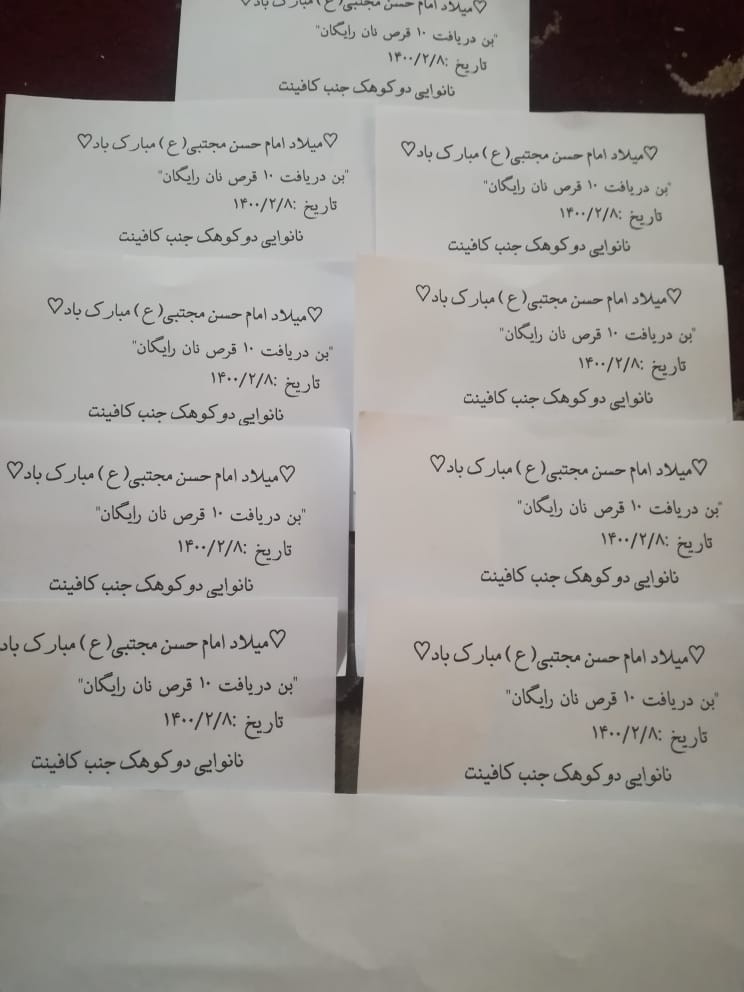 ♡میلاد امام حسن مجتبی(ع) مبارک باد♡
"بن دریافت ۱۰ قرص نان رایگان"
تاریخ :۱۴۰۰/۲/۸
نانوایی دوکوهک جنب کافینت
♡میلاد امام حسن مجتبی(ع) مبارک باد♡
"بن دریافت ۱۰ قرص نان رایگان"
تاریخ :۱۴۰۰/۲/۸
نانوایی دوکوهک جنب کافینت
♡میلاد امام حسن مجتبی(ع) مبارک باد♡
"بن دریافت ۱۰ قرص نان رایگان"
تاریخ :۱۴۰۰/۲/۸
نانوایی دوکوهک جنب کافینت
♡میلاد امام حسن مجتبی(ع) مبارک باد♡
"بن دریافت ۱۰ قرص نان رایگان"
تاریخ :۱۴۰۰/۲/۸
نانوایی دوکوهک جنب کافینت
♡میلاد امام حسن مجتبی(ع) مبارک باد♡
"بن دریافت ۱۰ قرص نان رایگان"
تاریخ :۱۴۰۰/۲/۸
نانوایی دوکوهک جنب کافینت
♡میلاد امام حسن مجتبی(ع) مبارک باد♡
"بن دریافت ۱۰ قرص نان رایگان"
تاریخ :۱۴۰۰/۲/۸
نانوایی دوکوهک جنب کافینت
♡میلاد امام حسن مجتبی(ع) مبارک باد♡
"بن دریافت ۱۰ قرص نان رایگان"
تاریخ :۱۴۰۰/۲/۸
نانوایی دوکوهک جنب کافینت
♡میلاد امام حسن مجتبی(ع) مبارک باد♡
"بن دریافت ۱۰ قرص نان رایگان"
تاریخ :۱۴۰۰/۲/۸
نانوایی دوکوهک جنب کافینت
♡میلاد امام حسن مجتبی(ع) مبارک باد
"بن دریافت ۱۰ قرص نان رایگان"
تاریخ :۱۴۰۰/۲/۸
نانوایی دوکوهک جنب کافینت